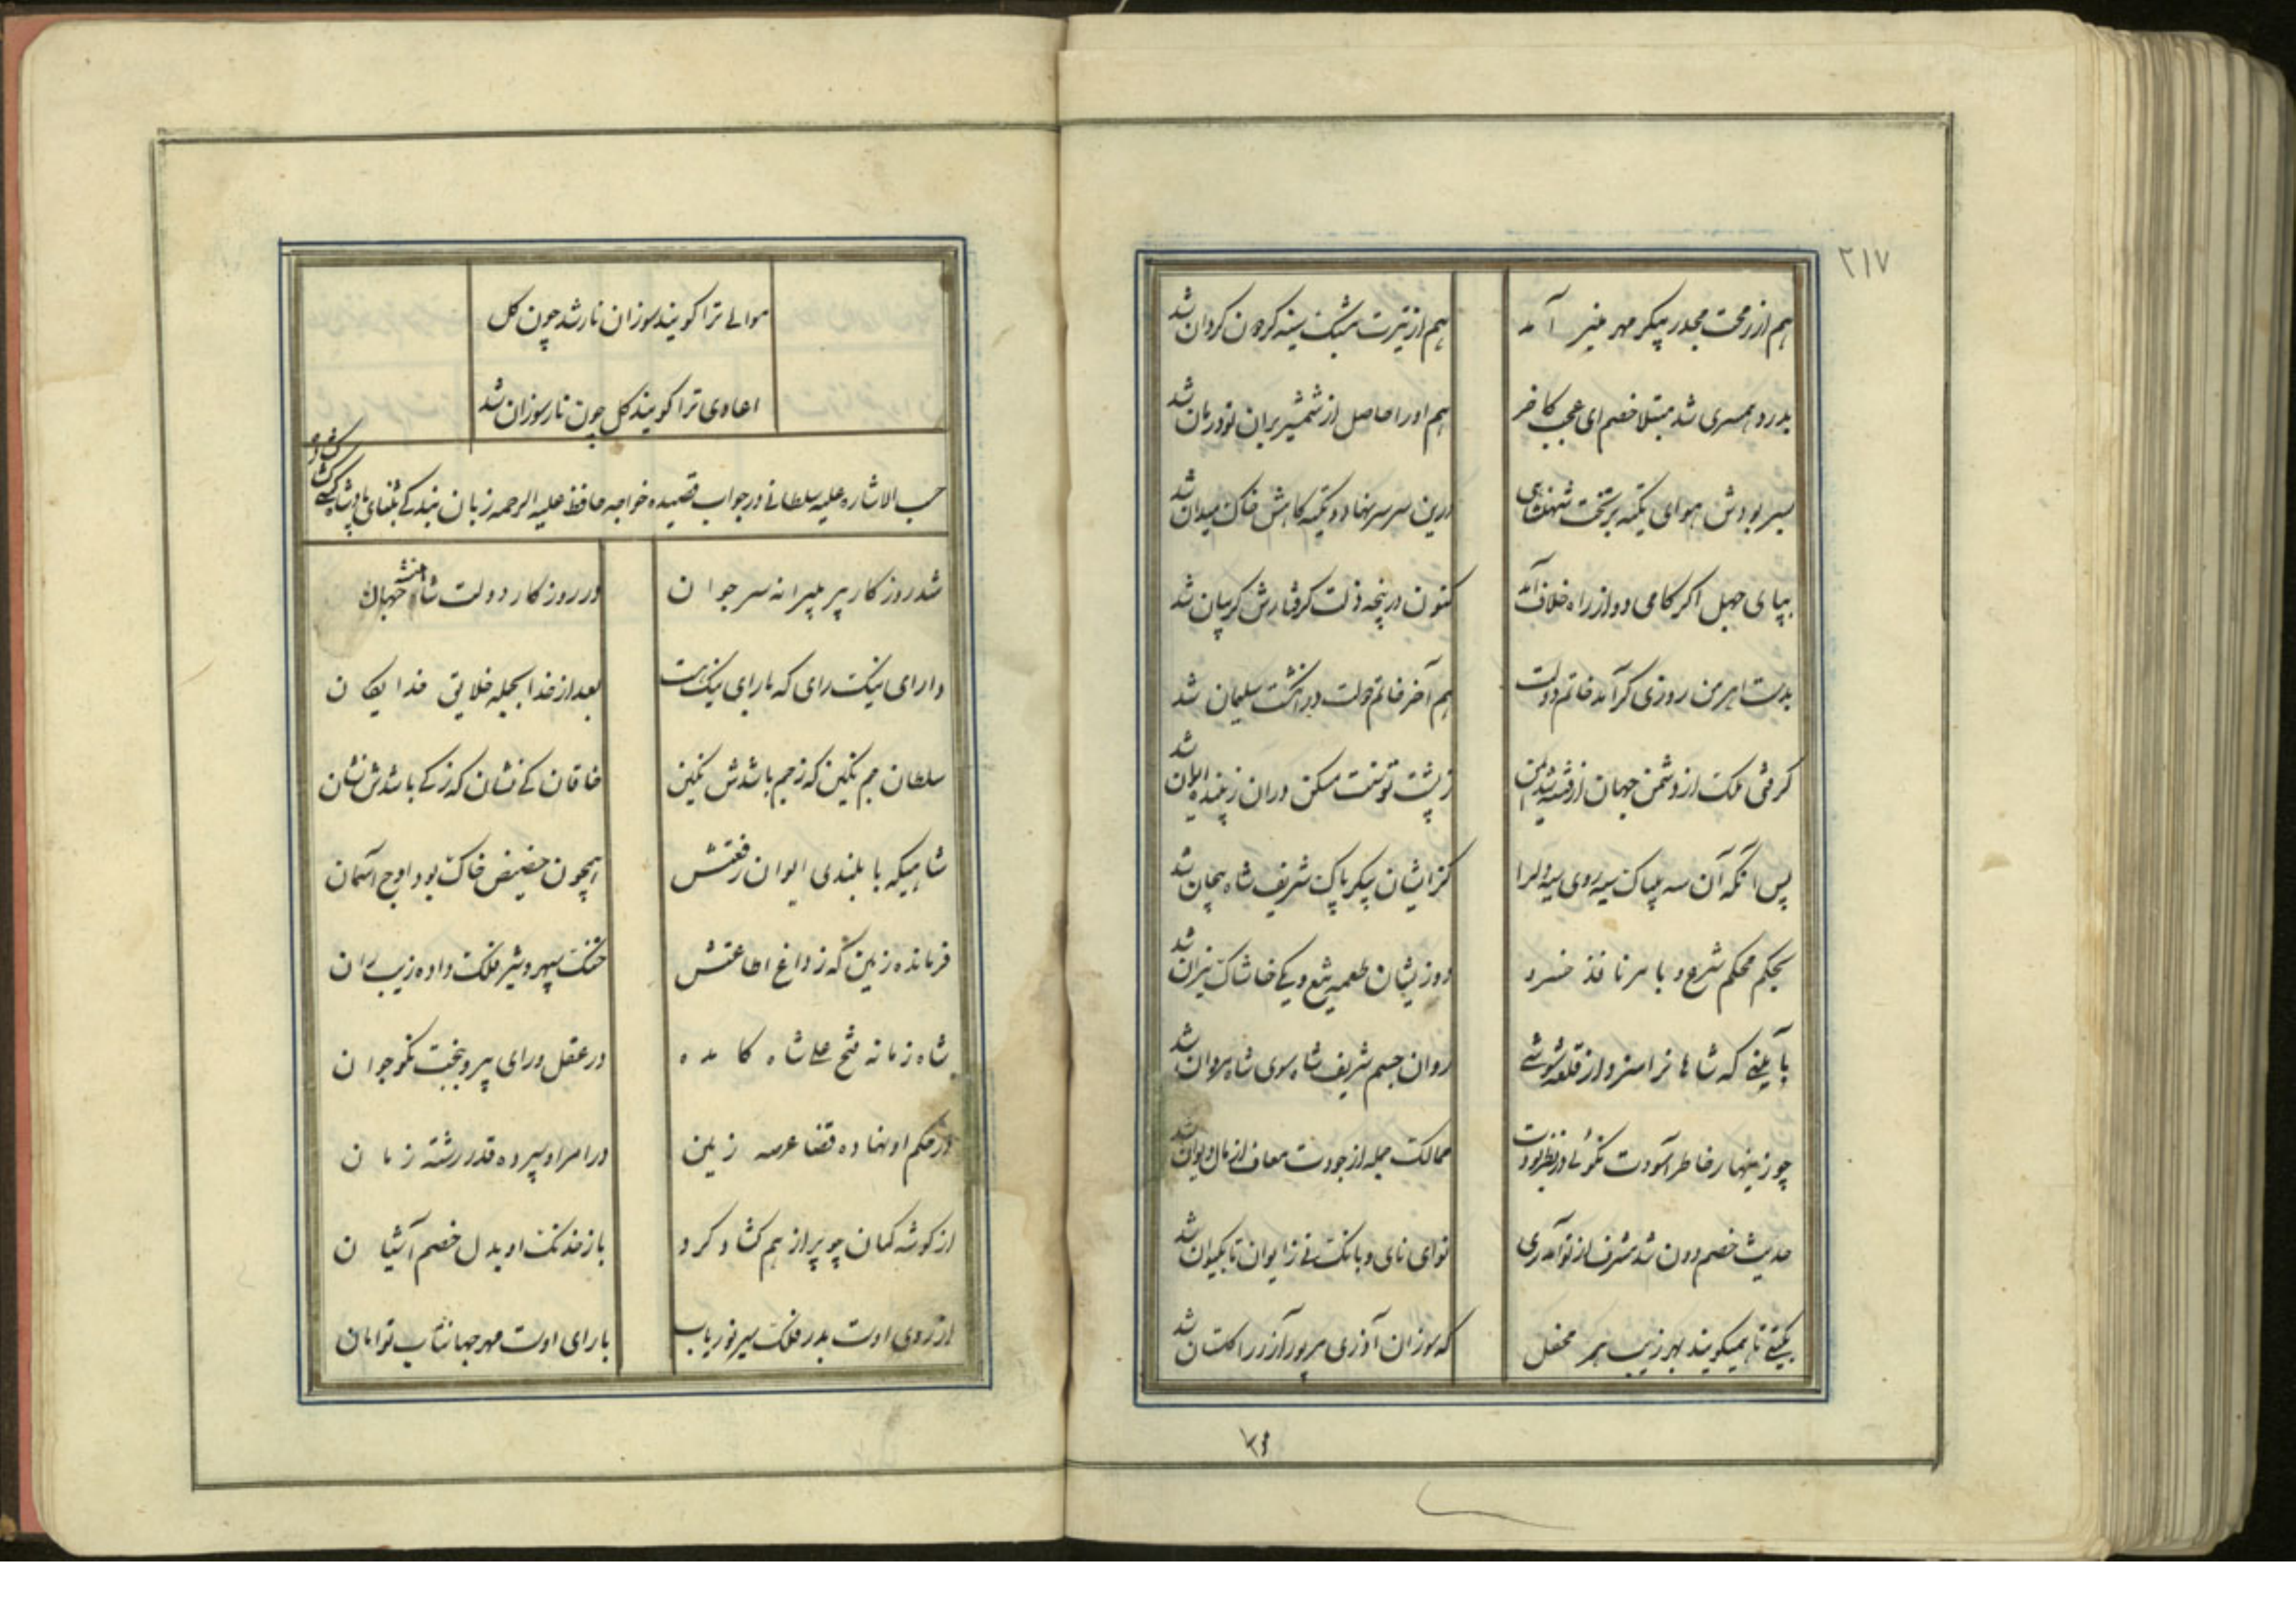 ۲۱۷
هم از رمحت مجدر پیکر مهر منیر آمد
هم از تیرت مشبک سینه گردون گردان شد
بدرد همسری شد مبتلا خصم ای عجب کافر
هم او را حاصل از شمشیر بران تو درمان شد
بسر بودش هوای تکیه بر تخت شهنشاهی
درین سر سر نهاد و تکیه کاهش خاک میدان شد
بپای جهل اکر کامی دو از راه خلاف آمد
کنون در پنجه ذلت کرفتارش کریبان شد
بدست اهرمن روزی کر آمد خاتم دولت
هم آخر خاتم دولت در انکشت سلیمان شد
کرفتی ملک از دشمن جهان از فتنه شد ایمن
ز پشت توسنت مسکن در آن زیبنده ایوان شد
پس آنکه آن سه ناپاک سیه روی سیه دل را
کز ایشان پیکر پاک شریف شاه بیجان شد
بحکم محکم شرع و با مر نافذ خسرو
دو ز یشان طعمه تیغ و یکی خاشاک نیران شد
بآیینی که شاها نرا سزد از قلعه شوشی
روان جسم شریف شاه سوی شاه مروان شد
چو زینها ر خاطر آسودت نکوئی در نظر بودت
ممالک جمله از جودت معاف از مال دیوان شد
حدیث خصم دون شد مشرف از تو آمد ری
نوای نای و بانک نی ز ایوان تا بکیوان شد
بکیتی تا همیکویند بهر زیب هر محفل
که سوزان آذری مر پور آزر را کلستان شد
هوالی ترا کویند سوزان نار شد چون کل
اعادی ترا کویند کل چون نار سوزان شد
حسب الاشاره علیه سلطانی در جواب قصیده خواجه حافظ علیه الرحمه زبان بندکی بثنای پادشاه کشی کشاد
شد روزکار پیر به پیرانه سر جوان
در روزکار دولت شاهنشه جهان
دارای نیک رای که با رای نیک هست
بعد از خدا بجمله خلایق خدایکان
سلطان جم نکین که ز جم باشدش نکین
خاقان کی نشان که ز کی باشدش نشان
شاهیکه با بلندی ایوان رفعتش
همچون حضیض خاک بود اوج آسمان
فرمانده زمین که ز داغ اطاعتش
خنک سپهر و شیر فلک داده زیب ران
شاه زمانه فتح علی شاه کامده
در عقل و رای پیر و ببخت نکو جوان
در حکم او نهاده قضا عرصه زمین
در امر او سپرده قدر رشته زمان
از کوشه کمان چو پر از هم کشاد کرد
باز خدنک او بدل خصم آشیان
از روی اوست بدر فلک سیر نور یاب
با رای اوست مهر جهانتاب توامان